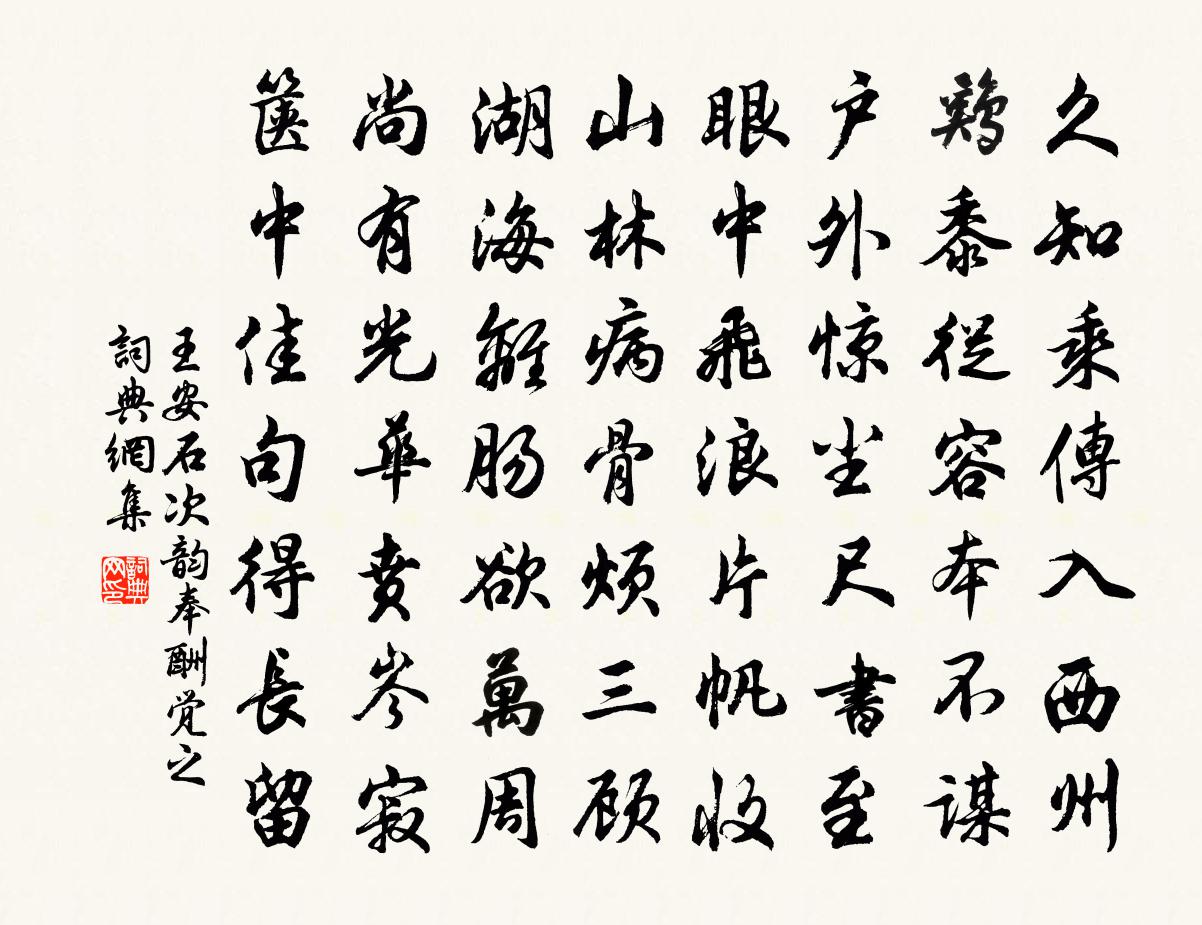 久知乘傳入西州
鷄黍從容本不謀
户外惊尘尺書至
眼中飛浪片帆收
山林病骨煩三顾
湖海離肠欲萬周
尚有光華賁岑寂
箧中佳句得長留
王安石次韵奉酬觉之
詞典網集
詞典网印